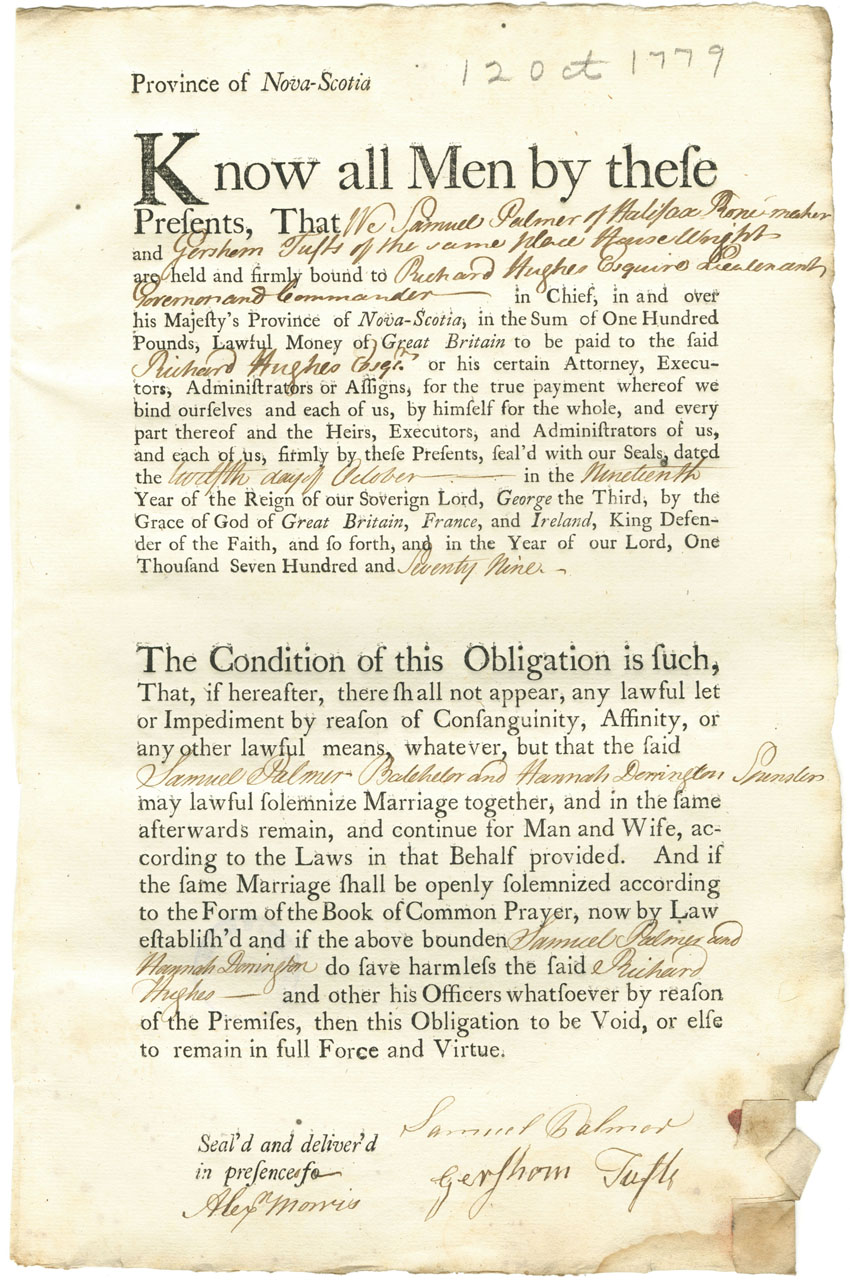 12 Oct 1779
Province of Nova-Scotia
Know all Men by theſe
Preſents, That We Samuel Palmer of Halifax Rope maker
and Gershom Tufts of the same place House Wright
are held and firmly bound to Richard Hughes Esquire Lieutenant
Governor and Commander in Chief, in and over
his Majeſty's Province of Nova-Scotia, in the Sum of One Hundred
Pounds, Lawful Money of Great Britain to be paid to the ſaid
Richard Hughes Esqr. or his certain Attorney, Execu-
tors, Adminiſtrators or Aſſigns, for the true payment whereof we
bind ourſelves and each of us, by himſelf for the whole, and every
part thereof and the Heirs, Executors, and Adminiſtrators of us,
and each of us, firmly by theſe Preſents, ſeal'd with our Seals, dated
the twelfth day of October in the Nineteenth
Year of the Reign of our Soverign Lord, George the Third, by the
Grace of God of Great Britain, France, and Ireland, King Defen-
der of the Faith, and ſo forth, and in the Year of our Lord, One
Thouſand Seven Hundred and Seventy Nine.
The Condition of this Obligation is ſuch,
That, if hereafter, there ſhall not appear, any lawful let
or Impediment by reaſon of Conſanguinity, Affinity, or
any other lawful means, whatever, but that the ſaid
Samuel Palmer Batchelor and Hannah Dorrington Spinster
may lawful ſolemnize Marriage together, and in the ſame
afterwards remain, and continue for Man and Wife, ac-
cording to the Laws in that Behalf provided. And if
the ſame Marriage ſhall be openly ſolemnized according
to the Form of the Book of Common Prayer, now by Law
eſtabliſh'd and if the above bounden Samuel Palmer and
Hannah Dorrington do ſave harmleſs the ſaid Richard
Hughes and other his Officers whatſoever by reaſon
of the Premiſes, then this Obligation to be Void, or elſe
to remain in full Force and Virtue.
Samuel Palmer
Seal'd and deliver'd
in preſence fo
Gerſhom Tufts
Alexr Morris